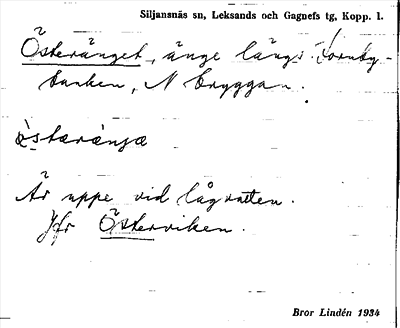 Siljansnäs sn, Leksands och Gagnefs tg, Kopp. l.
Österänget, änge längs Fornby-
banken, N bryggan.
östæränjæ
Är uppe vid lågvatten.
Jfr Österviken.
Bror Lindén 1934